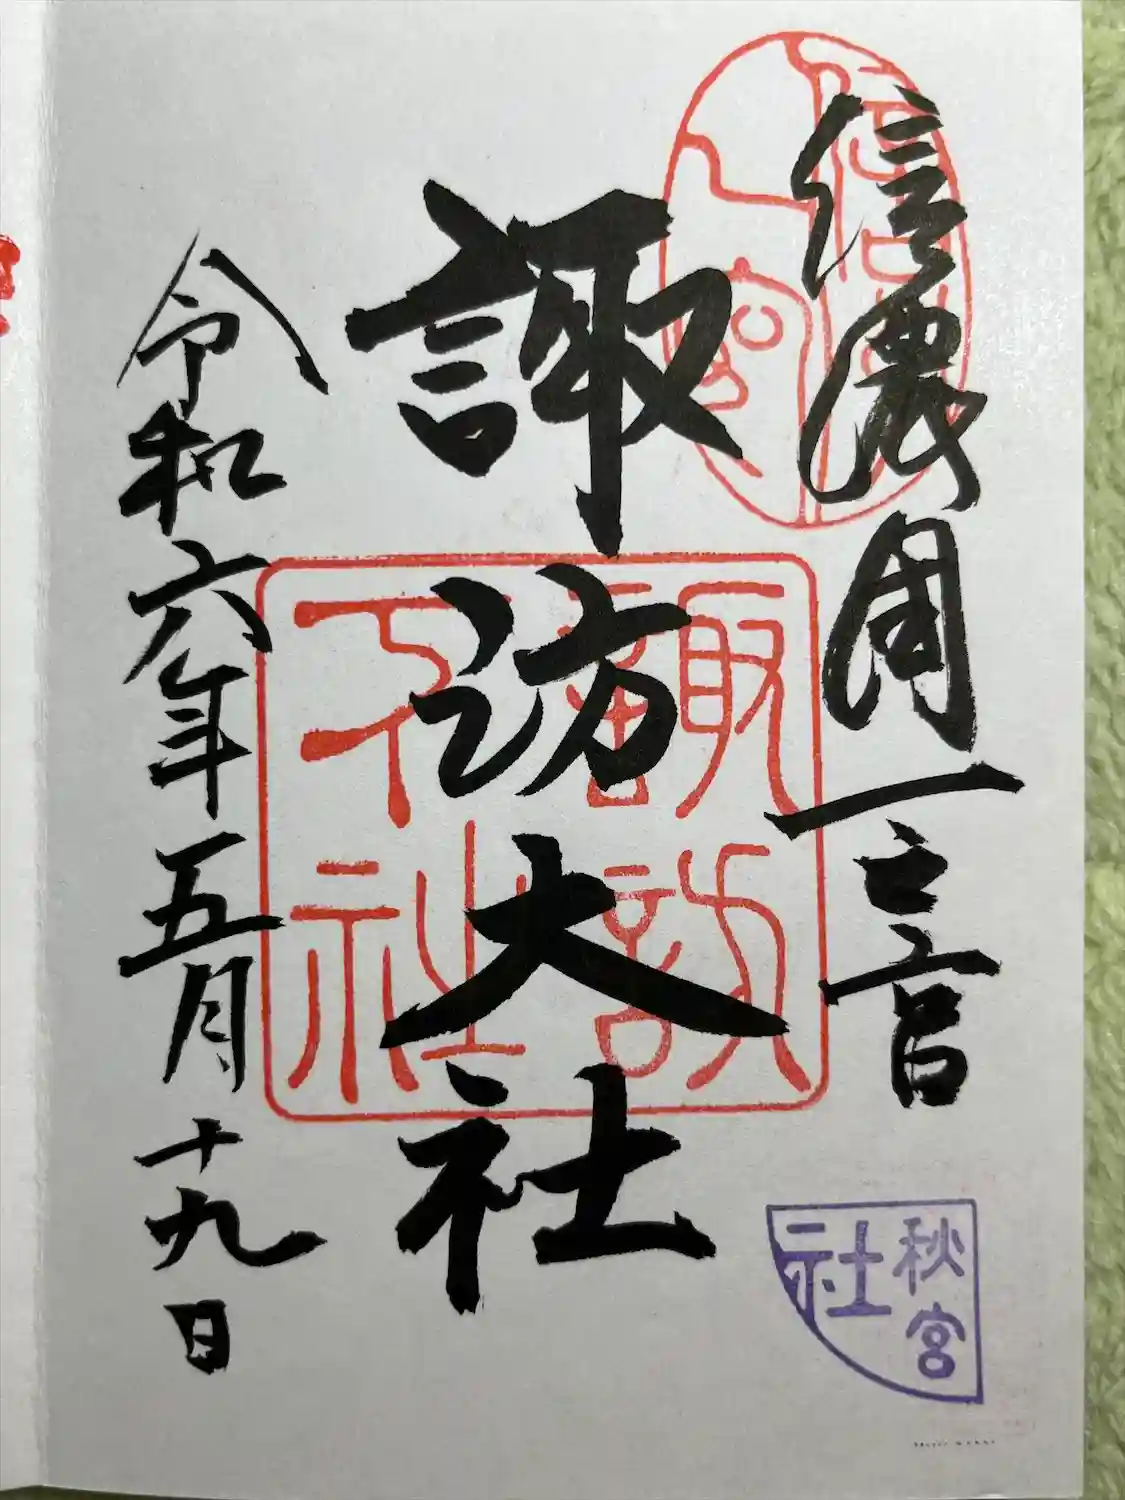 信濃國一之宮
諏訪大社
令和六年五月十九日
諏訪
下社
秋宮
社